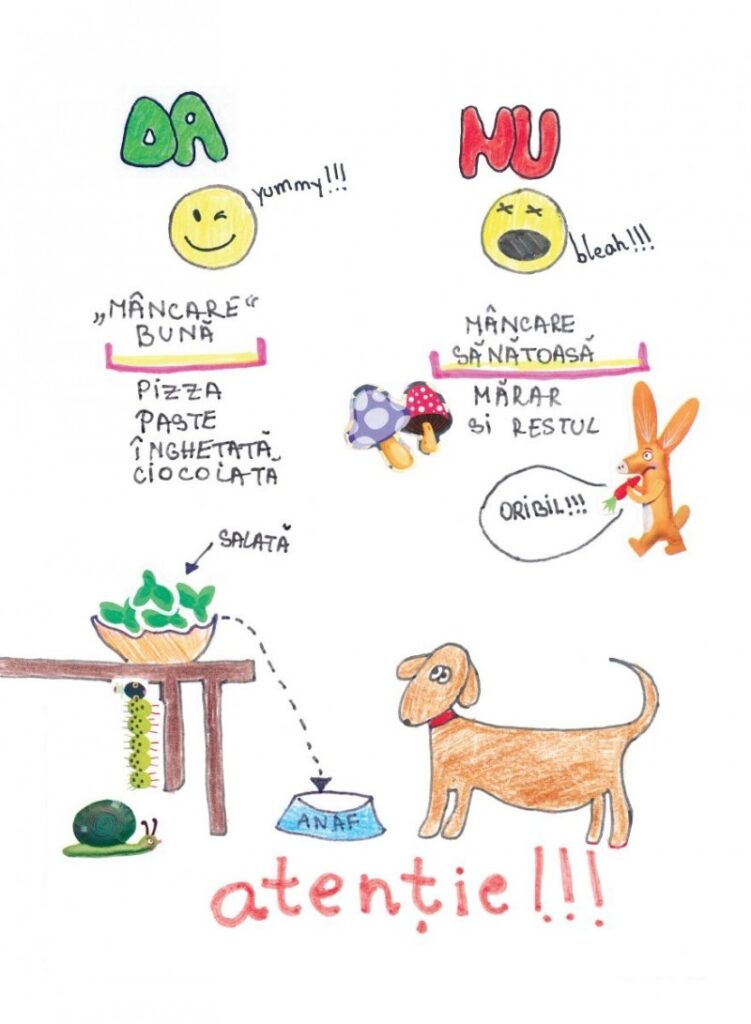 DA
yummy!!!
„MÂNCARE“
BUNĂ
PIZZA
PASTE
ÎNGHETATĂ
CIOCOLATĂ
NU
bleah!!!
MÂNCARE
SĂNĂTOASĂ
MĂRAR
SI RESTUL
ORIBIL!!!
SALATĂ
ANAF
atenție!!!